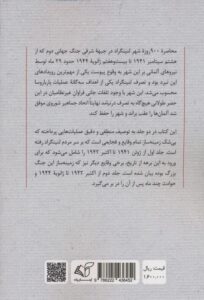 محاصرهٔ ۹۰۰ روزهٔ شهر لنینگراد در جبههٔ شرقی جنگ جهانی دوم که از
هشتم سپتامبر ۱۹۴۱ تا بیست‌وهفتم ژانویهٔ ۱۹۴۴ حدود ۲۹ ماه توسط
نیروهای آلمانی بر این شهر به وقوع پیوست یکی از مهم‌ترین رویدادهای
این نبرد بود و تصرف لنینگراد یکی از اهداف سه‌گانهٔ عملیات بارباروسا
محسوب می‌شد. این شهر با وجود تلفات جانی فراوان غیرنظامیان در این
حصر طولانی هیچ‌گاه به تصرف درنیامد نهایتاً اتحاد جماهیر شوروی موفق
شد آلمان‌ها را عقب براند و شهر را حفظ کند.
این کتاب در دو جلد به توصیف منطقی و دقیق عملیات‌هایی پرداخته که
بی‌شک زمینه‌ساز تمام وقایع و فجایعی است که بر سر مردم لنینگراد رفته
است. جلد اول از ژوئن ۱۹۴۱ تا اکتبر ۱۹۴۲ را شامل می‌شود که برای
ورود به این برهه از تاریخ، برخی وقایع دیگر نیز که زمینه‌ساز این جنگ
بزرگ بوده بیان شده است. جلد دوم از اکتبر ۱۹۴۲ تا ژانویهٔ ۱۹۴۴ و
حوادث چند ماه پس از آن را در بر می‌گیرد.
قیمت: ریال
۱/۶۰۰/۰۰۰
9 786222 436452